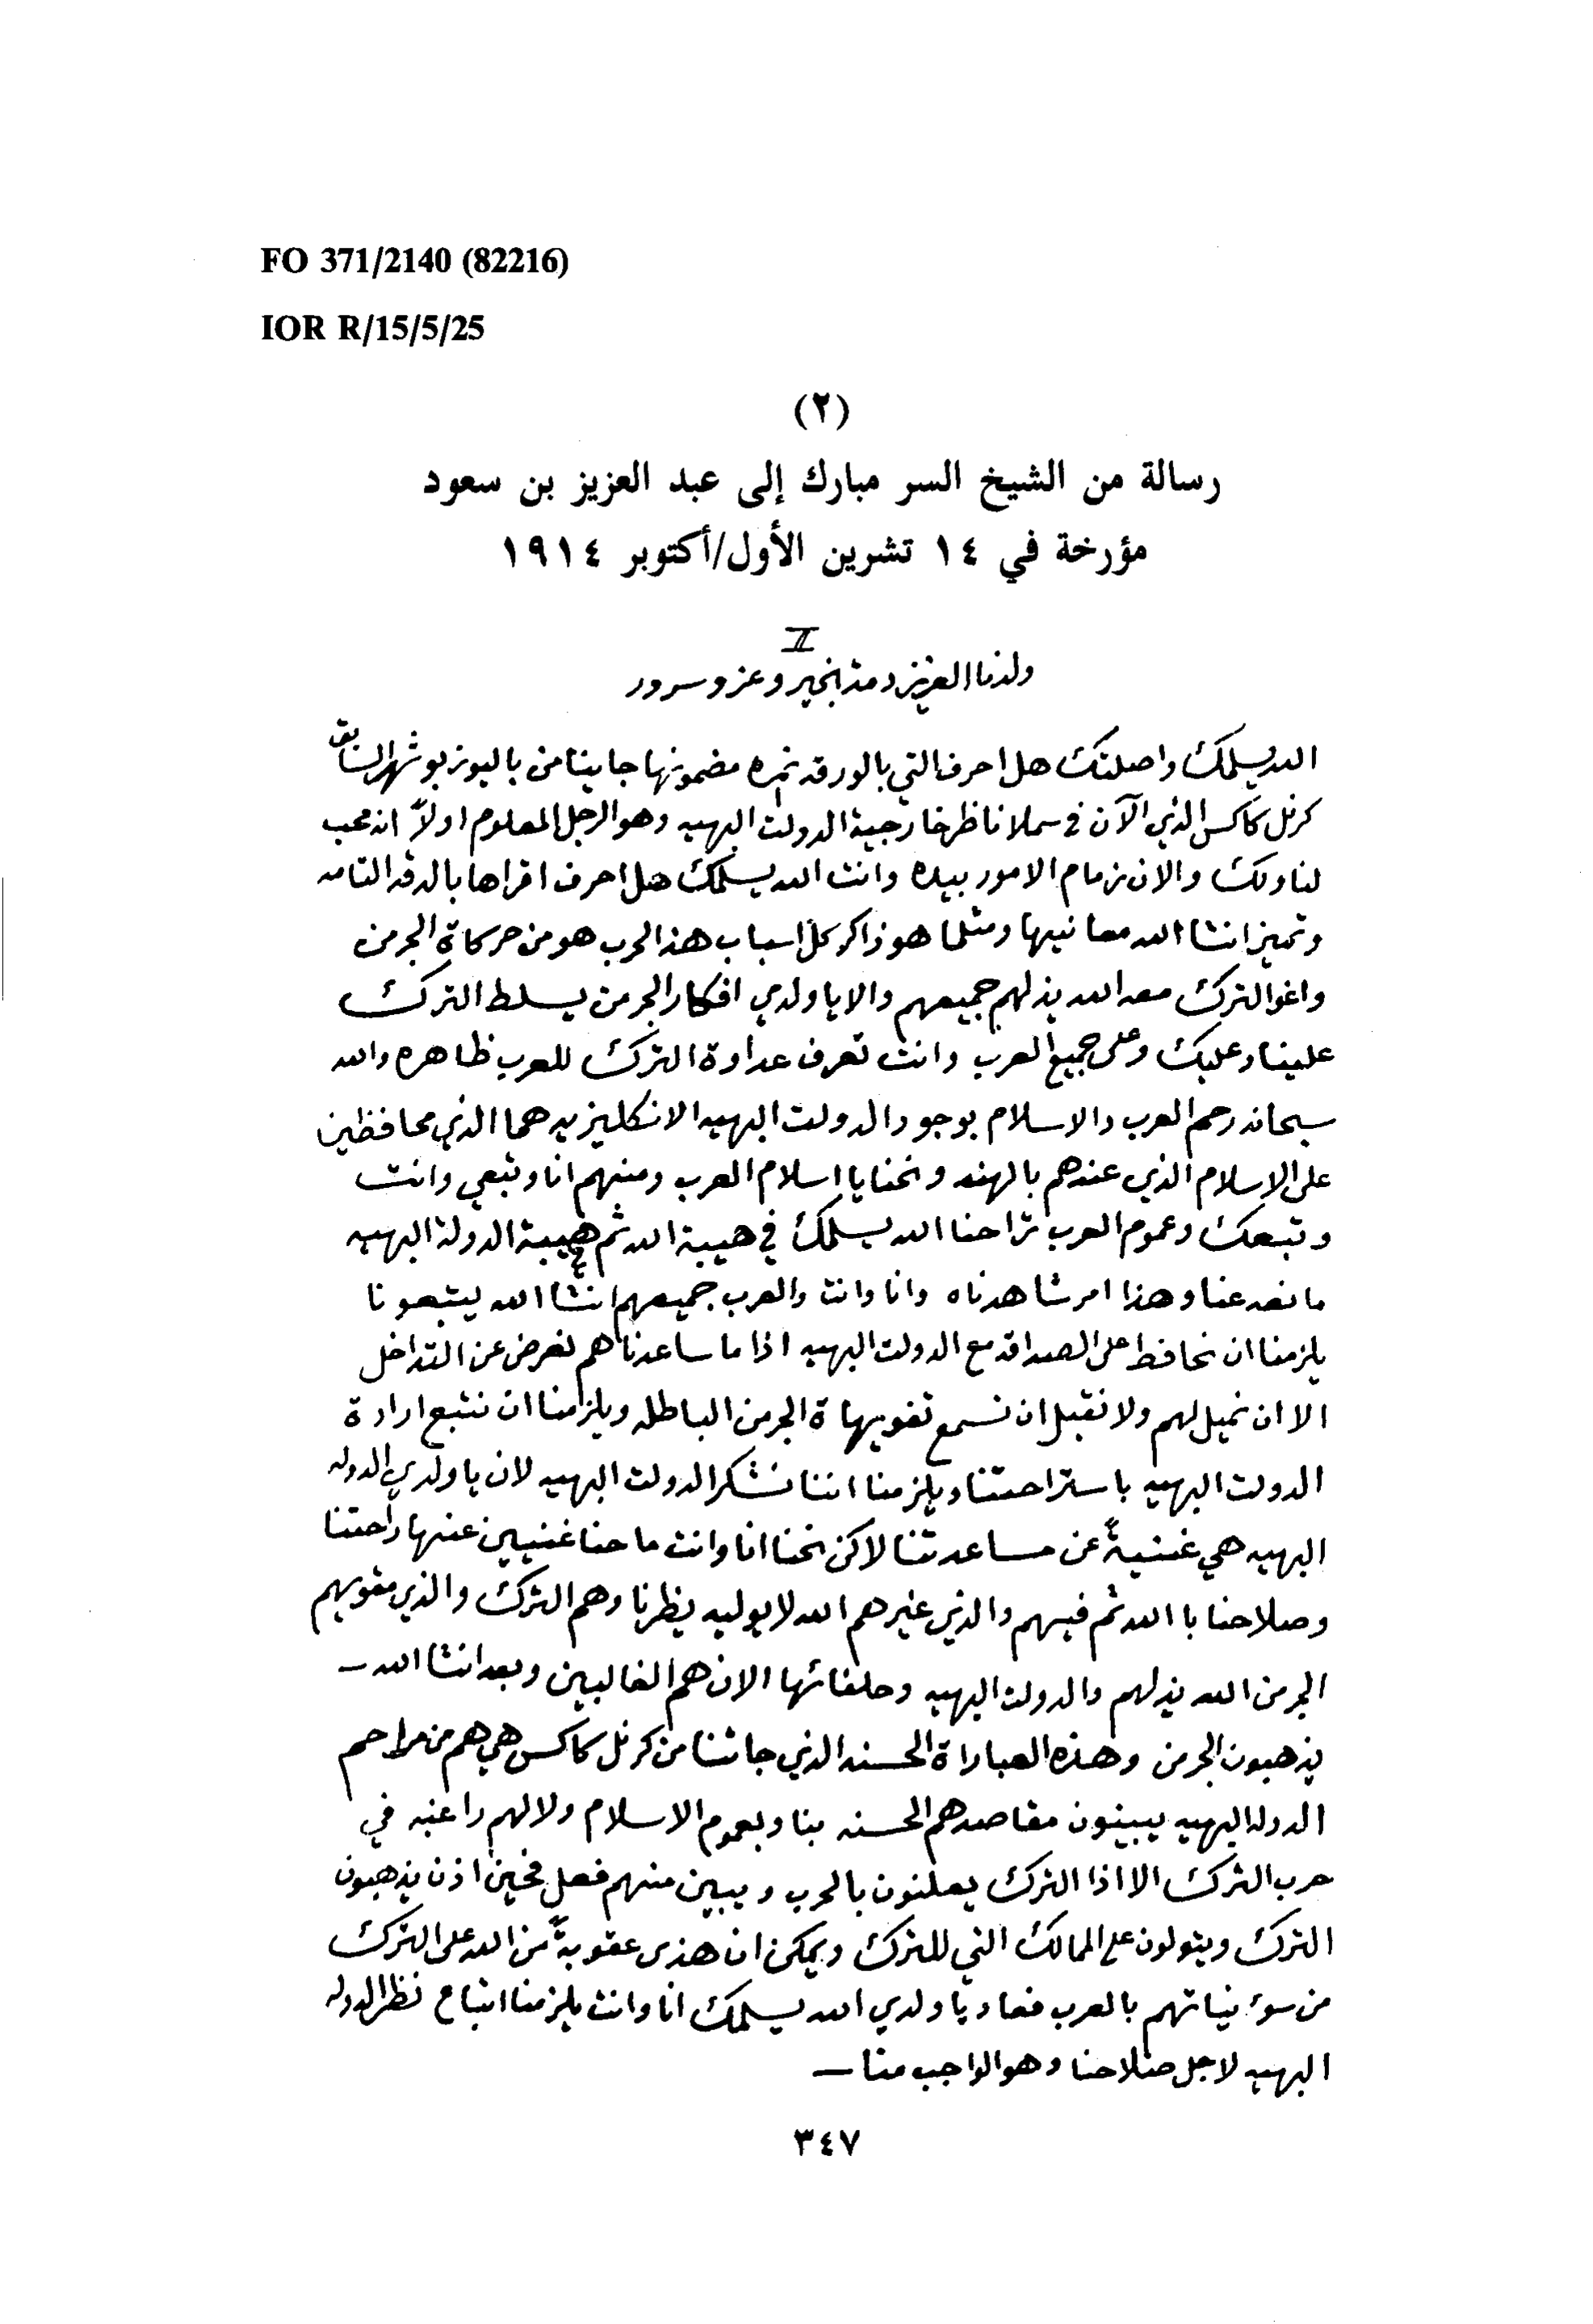 FO 371/2140 (82216)
IOR R/15/5/25
(٢)
رسالة من الشيخ السر مبارك إلى عبد العزيز بن سعود
مؤرخة في ١٤ تشرين الأول/أكتوبر ١٩١٤
II
ولدنا العزيز دمت بخير وعز وسرور
الله يسلمك واصلتك هل احرف التي بالورقه نمره مضمونها جاينا من باليوز بو شهر السابق
كرنل كاكس الذي الآن في سملا ناظر خارجية الدولت البهيه وهو الرجل المعلوم اولاً انه محب
لنا ولك والان زمام الامور بيده وانت الله يسلمك هل احرف اقراها بالدقه التامه
وتميز انشا الله معانيها ومثلما هو ذاكر كل اسباب هذ الحرب هو من حركاة الجرمن
واغوا الترك معه الله يذلهم جميعهم والا يا ولدي افكار الجرمن يسلط الترك
علينا وعليك وعلى جميع العرب وانت تعرف عداوة الترك للعرب ظاهره والله
سبحانه رحم العرب والاسلام بوجود الدولت البهيه الانكليزيه هما الذي محافظين
على الاسلام الذي عندهم بالهند ونحنا يا اسلام العرب ومنهم انا وتبعي وانت
وتبعك وعموم العرب تراحنا الله يسلمك في هيبة الله ثم هيبة الدولة البهيه
ما نعد عنا وهذا امر شاهدناه وانا وانت والعرب جميعهم انشا الله يتبعونا
يلزمنا ان نحافظ على الصداقه مع الدولت البهيه اذا ما ساعدناهم نعرض عن التداخل
الا ان نميل لهم ولا نقبل ان نسمع تفويهاة الجرمن الباطله ويلزمنا ان نتبع ارادة
الدولت البهيه باستراحتنا ويلزمنا اننا نشكر الدولت البهيه لان يا ولدي الدوله
البهيه هي غنيةً عن مساعدتنا لاكن نحنا انا وانت ما حنا غنيين عنها راحتنا
وصلاحنا با الله ثم فيهم والذي غيرهم الله لا يوليه ينظرنا وهم الترك والذي مقويهم
الجرمن الله يذلهم والدولت البهيه وحلفائها الان هم الغالبين وبعد انشا الله –
يذهبون الجرمن وهذه العباراة الحسنه الذي جاتنا من كرنل كاكس هي هم من مراحم
الدوله البهيه يبينون مقاصدهم الحسنه بنا وبعموم الاسلام ولا لهم راغبه في
حرب الترك الا اذا الترك يعلنون بالحرب ويبين منهم فعل فحين اذن يذهبون
الترك ويتولون على الممالك التي للترك ويمكن ان هذى عقوبةً من الله على الترك
من سوء نياتهم بالعرب فعاد يا ولدي الله يسلمك انا وانت يلزمنا اتباع نظر الدوله
البهيه لاجل صلاحنا وهو الواجب منا –
٣٤٧